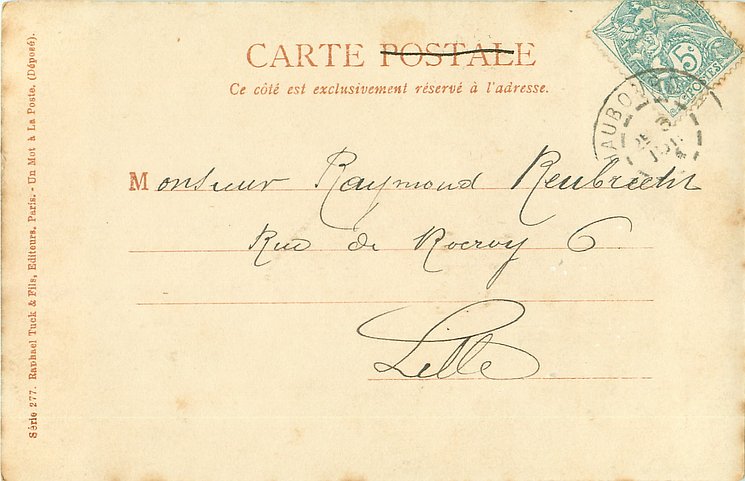 CARTE POSTALE
Ce côté est exclusivement réservé à l'adresse.
5c
POSTES
AUBO
Monsieur Raymond Reubrecht
Rue de Rocroy 6
Lille
Série 277. Raphael Tuck & Fils, Editeurs, Paris. - Un Mot à La Poste. (Déposé).